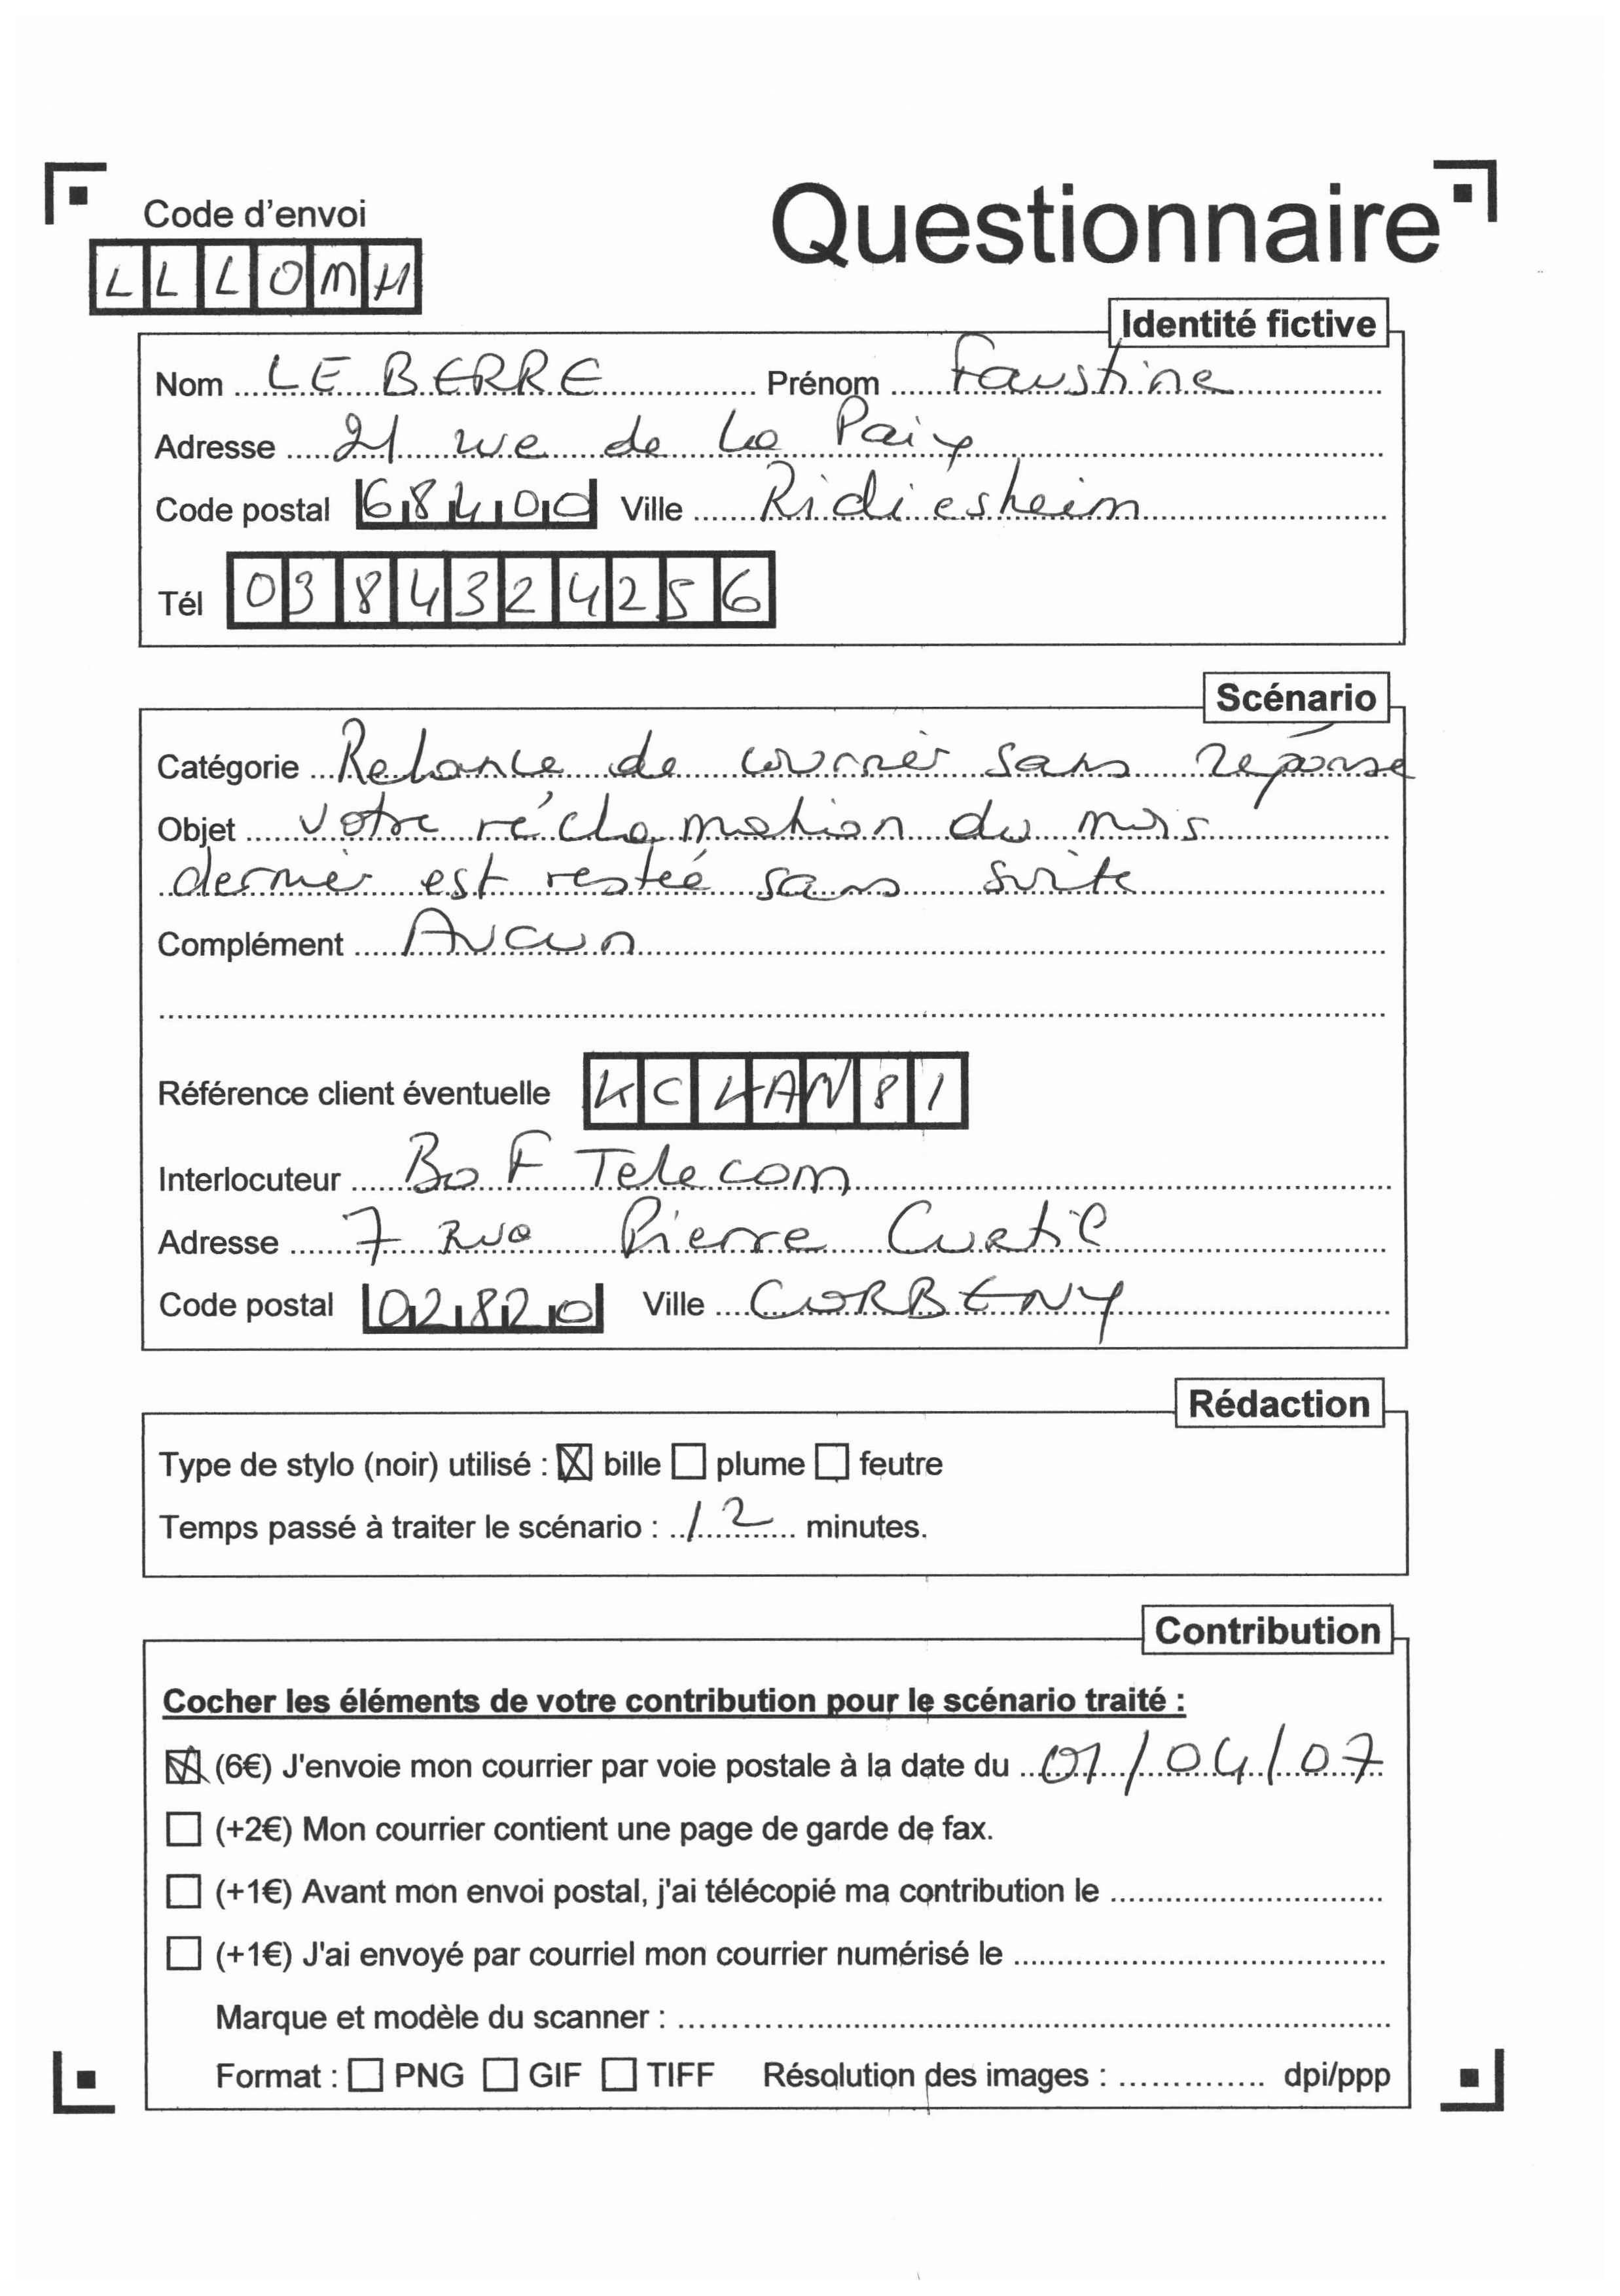 Code d'envoi
Questionnaire
LLLOMH
Identité fictive
Nom LE BERRE Prénom Faustine
Adresse 21 rue de la Paix
Code postal 68400 Ville Ridiesheim
Tél 0384324256
Scénario
Catégorie Relance de courrier sans réponse
Objet Votre réclamation du mois
dernier est restée sans suite
Complément Aucun
Référence client éventuelle KCHAN81
Interlocuteur Bo F Telecom
Adresse 7 Rue Pierre Curtil
Code postal 02820 Ville CORBENY
Rédaction
Type de stylo (noir) utilisé : ☒ bille ☐ plume ☐ feutre
Temps passé à traiter le scénario : 12 minutes.
Contribution
Cocher les éléments de votre contribution pour le scénario traité :
☒ (6€) J'envoie mon courrier par voie postale à la date du 01/04/07
☐ (+2€) Mon courrier contient une page de garde de fax.
☐ (+1€) Avant mon envoi postal, j'ai télécopié ma contribution le
☐ (+1€) J'ai envoyé par courriel mon courrier numérisé le
Marque et modèle du scanner :
Format : ☐ PNG ☐ GIF ☐ TIFF Résolution des images : dpi/ppp